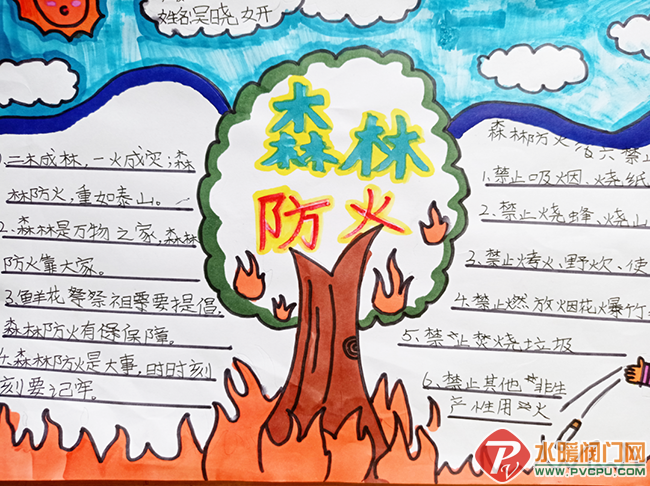 姓名:吴晓妍
森林
防火
1、二木成林,一火成灾;森
林防火,重如泰山。
2、森林是万物之家,森林
防火靠大家。
3、鲜花祭祖要提倡,
森林防火有保障。
4、森林防火是大事,时时刻
刻要记牢。
森林防火
1、禁止吸烟、烧纸
2、禁止烧蜂、烧山
3、禁止烤火、野炊、使
4、禁止燃放烟花爆竹
5、禁止焚烧垃圾
6、禁止其他非生
产性用火
水暖阀门网
WWW.PVCPU.COM